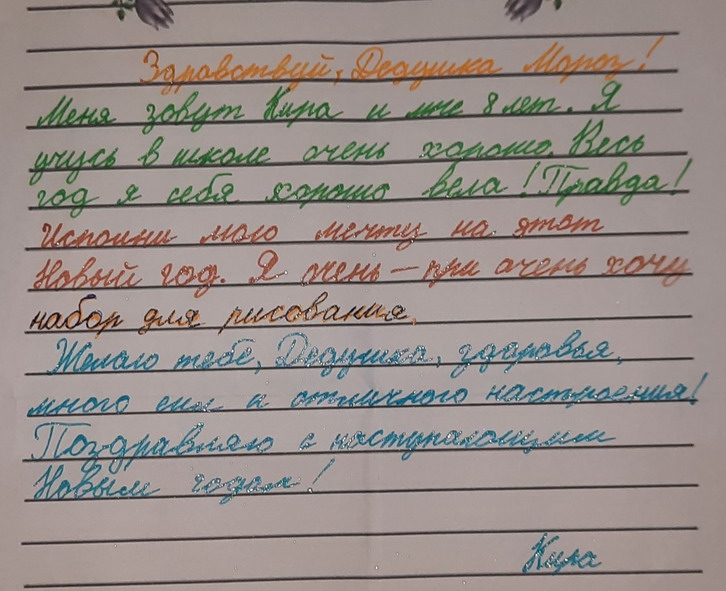 Здравствуй, Дедушка Мороз!
Меня зовут Кира и мне 8 лет. Я
учусь в школе очень хорошо. Весь
год я себя хорошо вела! Правда!
Исполни мою мечту на этот
Новый год. Я очень-при очень хочу
набор для рисования.
Желаю тебе, Дедушка, здоровья,
много сил и отличного настроения!
Поздравляю с наступающим
Новым годом!
Кира